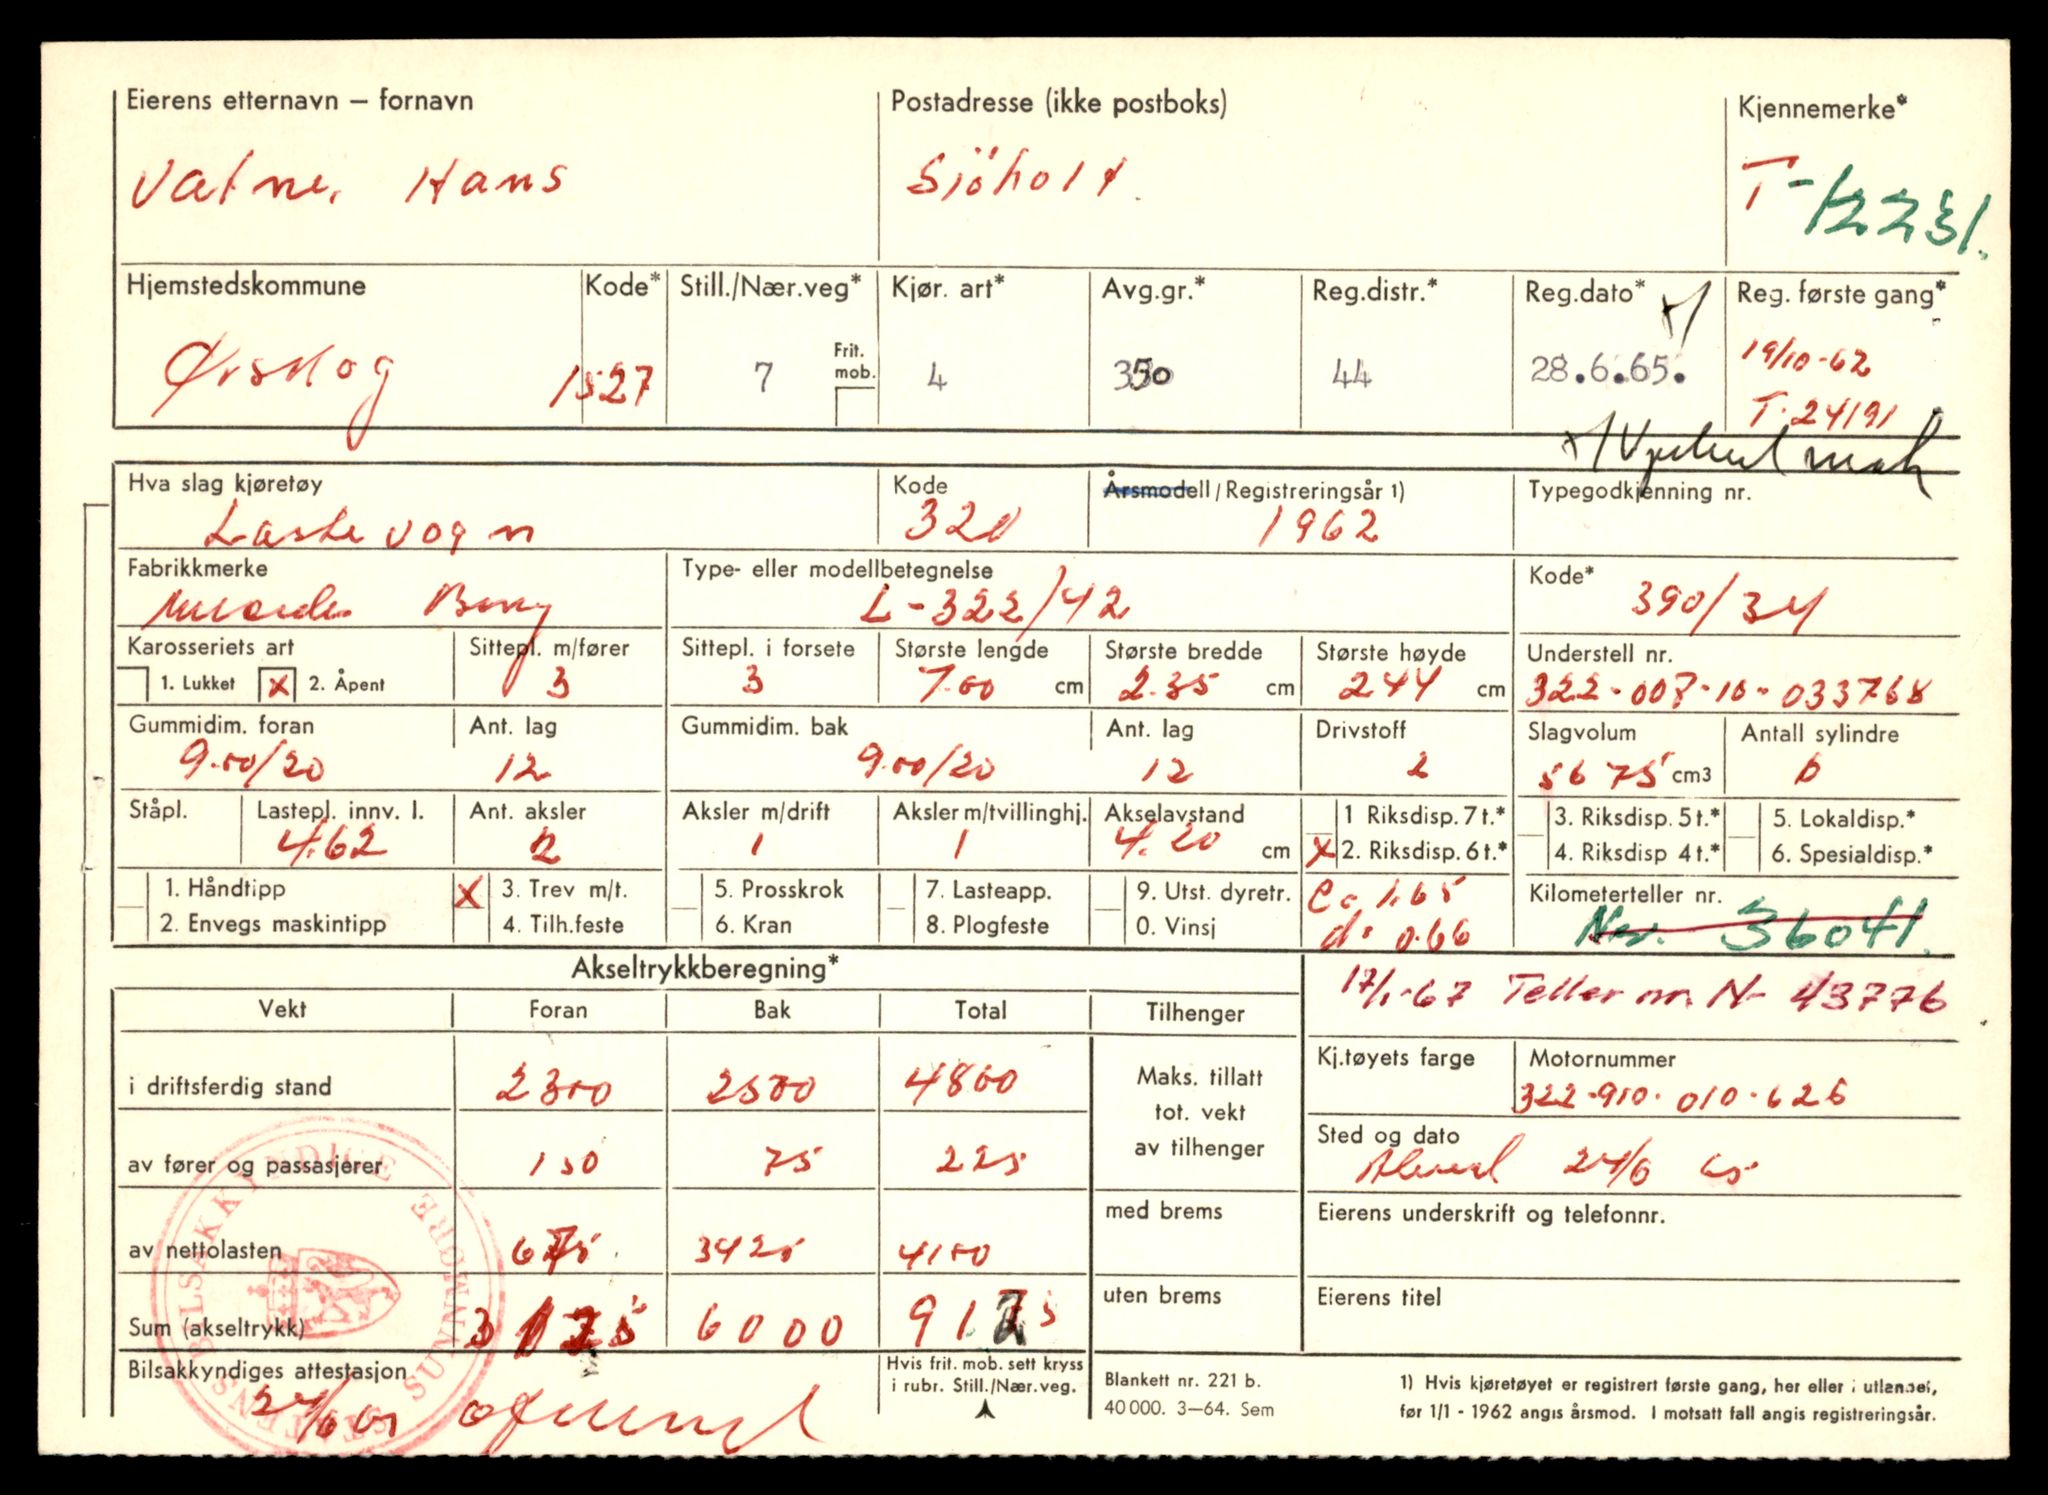 Eierens etternavn – fornavn Postadresse (ikke postboks) Kjennemerke*
Vatne, Hans Sjöholt. T-12231.
Hjemstedskommune Kode* Still./Nær.veg* Kjør. art* Avg.gr.* Reg.distr.* Reg.dato* Reg. første gang*
Ørskog 1527 7 Frit. mob. 4 350 44 28.6.65. 19/10-62
T. 24191
Hva slag kjøretøy Kode Årsmodell / Registreringsår 1) Typegodkjenning nr.
Lastevogn 320 1962
Fabrikkmerke Type- eller modellbetegnelse Kode*
L-322/42 390/34
Karosseriets art Sittepl. m/fører Sittepl. i forsete Største lengde Største bredde Største høyde Understell nr.
1. Lukket x 2. Åpent 3 3 7.00 cm 2.35 cm 244 cm 322-007-10-033768
Gummidim. foran Ant. lag Gummidim. bak Ant. lag Drivstoff Slagvolum Antall sylindre
9.00/20 12 9.00/20 12 2 5675 cm3 6
Ståpl. Lastepl. innv. l. Ant. aksler Aksler m/drift Aksler m/tvillinghj. Akselavstand 1 Riksdisp. 7 t.* 3. Riksdisp. 5 t.* 5. Lokaldisp.*
4.62 2 1 1 4.20 cm x 2. Riksdisp. 6 t.* 4. Riksdisp 4 t.* 6. Spesialdisp.*
1. Håndtipp x 3. Trev m/t. 5. Prosskrok 7. Lasteapp. 9. Utst. dyretr. c= 1.65 Kilometerteller nr.
2. Envegs maskintipp 4. Tilh.feste 6. Kran 8. Plogfeste 0. Vinsj d= 0.66 Nr. 36041.
Akseltrykkberegning* 17/1-67 Teller nr. N- 43776
Vekt Foran Bak Total Tilhenger
i driftsferdig stand 2300 2500 4800 Maks. tillatt tot. vekt av tilhenger Kj.tøyets farge Motornummer
322-910-010-626
av fører og passasjerer 150 75 225 Sted og dato
24/6 65
av nettolasten 675 3425 4100 med brems Eierens underskrift og telefonnr.
Sum (akseltrykk) 3125 6000 9125 uten brems Eierens titel
Bilsakkyndiges attestasjon Hvis frit. mob. sett kryss i rubr. Still./Nær.veg. Blankett nr. 221 b. 1) Hvis kjøretøyet er registrert første gang, her eller i utlandet,
24/6 65 40 000. 3–64. Sem før 1/1 - 1962 angis årsmod. I motsatt fall angis registreringsår.
STATENS BILSAKKYNDIGE SUNNMØRE